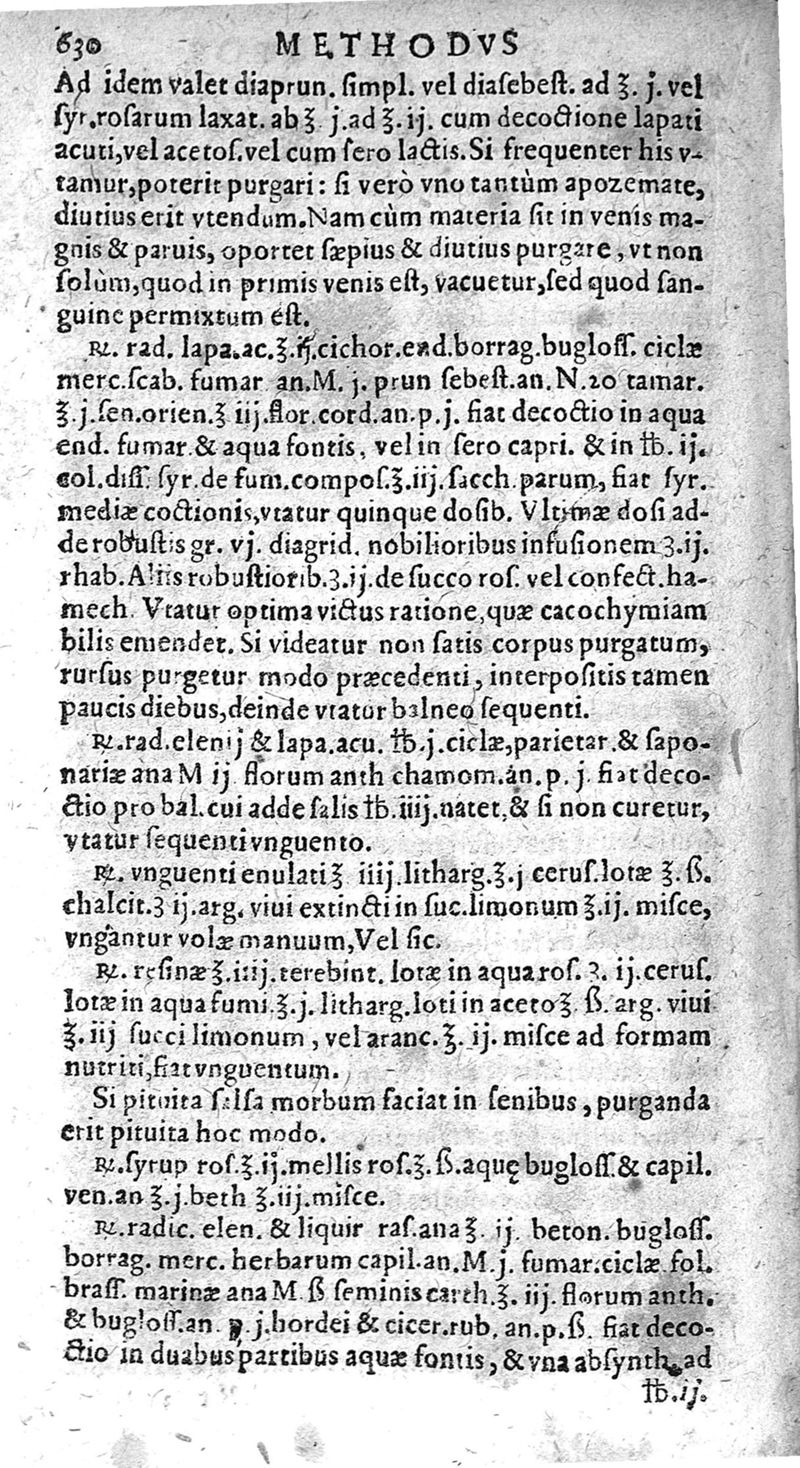 630 METHODVS
Ad idem valet diaprun. ſimpl. vel diaſebeſt. ad ℥. j. vel
ſyr. roſarum laxat. ab ℥. j. ad ℥. ij. cum decoctione lapati
acuti, vel acetoſ. vel cum ſero lactis. Si frequenter his v-
tamur, poterit purgari: ſi verò vno tantùm apozemate,
diutius erit vtendum. Nam cùm materia ſit in venis ma-
gnis & paruis, oportet ſæpius & diutius purgare, vt non
ſolùm, quod in primis venis eſt, vacuetur, ſed quod ſan-
guine permixtum eſt.
℞. rad. lapa. ac. ℥. ij. cichor. end. borrag. bugloſſ. ciclæ
merc. ſcab. fumar. an. M. j. prun ſebeſt. an. N. 20 tamar.
℥. j. ſen. orien. ℥ iij. flor. cord. an. p. j. fiat decoctio in aqua
end. fumar. & aqua fontis, vel in ſero capri. & in ℔. ij.
col. diſſ. ſyr. de fum. compoſ. ℥. iij. ſacch. parum, fiat ſyr.
mediæ coctionis, vtatur quinque doſib. Vltimæ doſi ad-
de robuſtis gr. vj. diagrid. nobilioribus infuſionem ʒ. ij.
rhab. Aliis robuſtiorib. ʒ. ij. de ſucco roſ. vel confect. ha-
mech. Vtatur optima victus ratione, quæ cacochymiam
bilis emendet. Si videatur non ſatis corpus purgatum,
rurſus purgetur modo præcedenti, interpoſitis tamen
paucis diebus, deinde vtatur balneo ſequenti.
℞. rad. elenij & lapa. acu. ℔. j. ciclæ, parietar. & ſapo-
nariæ ana M ij. florum anth chamom. an. p. j. fiat deco-
ctio pro bal. cui adde ſalis ℔. iiij. natet, & ſi non curetur,
vtatur ſequenti vnguento.
℞. vnguenti enulati ℥ iiij. litharg. ℥. j ceruſ. lotæ ℥. ß.
chalcit. ʒ ij. arg. viui extincti in ſuc. limonum ℥. ij. miſce,
vngantur volæ manuum, Vel ſic.
℞. reſinæ ℥. iiij. terebint. lotæ in aqua roſ. ʒ. ij. ceruſ.
lotæ in aqua fumi. ℥. j. litharg. loti in aceto ℥. ß. arg. viui
℥. iij ſucci limonum, vel aranc. ℥. ij. miſce ad formam
nutriti, fiat vnguentum.
Si pituita ſalſa morbum faciat in ſenibus, purganda
erit pituita hoc modo.
℞. ſyrup roſ. ℥. ij. mellis roſ. ℥. ß. aquę bugloſſ. & capil.
ven. an ℥. j. beth ℥. iij. miſce.
℞. radic. elen. & liquir raſ. ana ℥. ij. beton. bugloſſ.
borrag. merc. herbarum capil. an. M. j. fumar. ciclæ fol.
braſſ. marinæ ana M. ß ſeminis carth. ℥. iij. florum anth.
& bugloſſ. an. p. j. hordei & cicer. rub. an. p. ß. fiat deco-
ctio in duabus partibus aquæ fontis, & vna abſynth. ad
℔. ij.